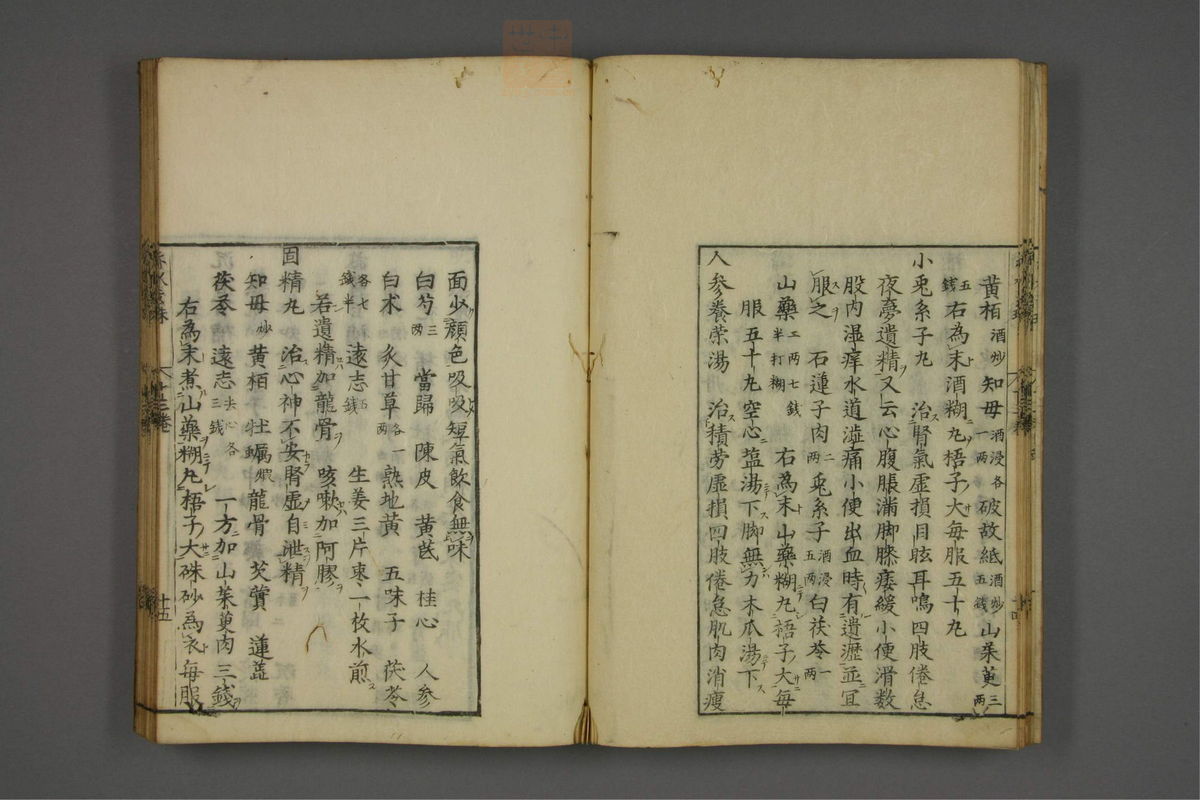 黄栢酒炒知母酒浸各一两破故紙酒炒五錢山茱萸三两
五錢右為末酒糊丸梧子大每服五十丸
小兎糸子丸 治腎氣虛損目眩耳鳴四肢倦怠
夜夢遺精又云心腹脹滿脚膝痿緩小便滑数
股内湿痒水道澁痛小便出血時有遺瀝並宜
服之 石蓮子肉二两兎糸子酒浸五两白茯苓一两
山藥二两七錢半打糊 右為末山藥糊丸梧子大每
服五十丸空心塩湯下脚無力木瓜湯下
人参養荣湯 治積劳虛損四肢倦怠肌肉消瘦
面少顏色吸吸短氣飲食無味
白芍三两 當歸 陳皮 黄芪 桂心 人参
白术 炙甘草各一两熟地黄 五味子 茯苓
各七錢半 遠志五錢 生姜三片枣一枚水煎
若遺精加龍骨 咳嗽加阿膠
固精丸 治心神不安腎虛自泄精
知母炒 黄栢 牡蠣煆龍骨 芡實 蓮蕊
茯苓 遠志去心各三錢 一方加山茱萸肉三錢
右為末煮山藥糊丸梧子大硃砂為衣每服